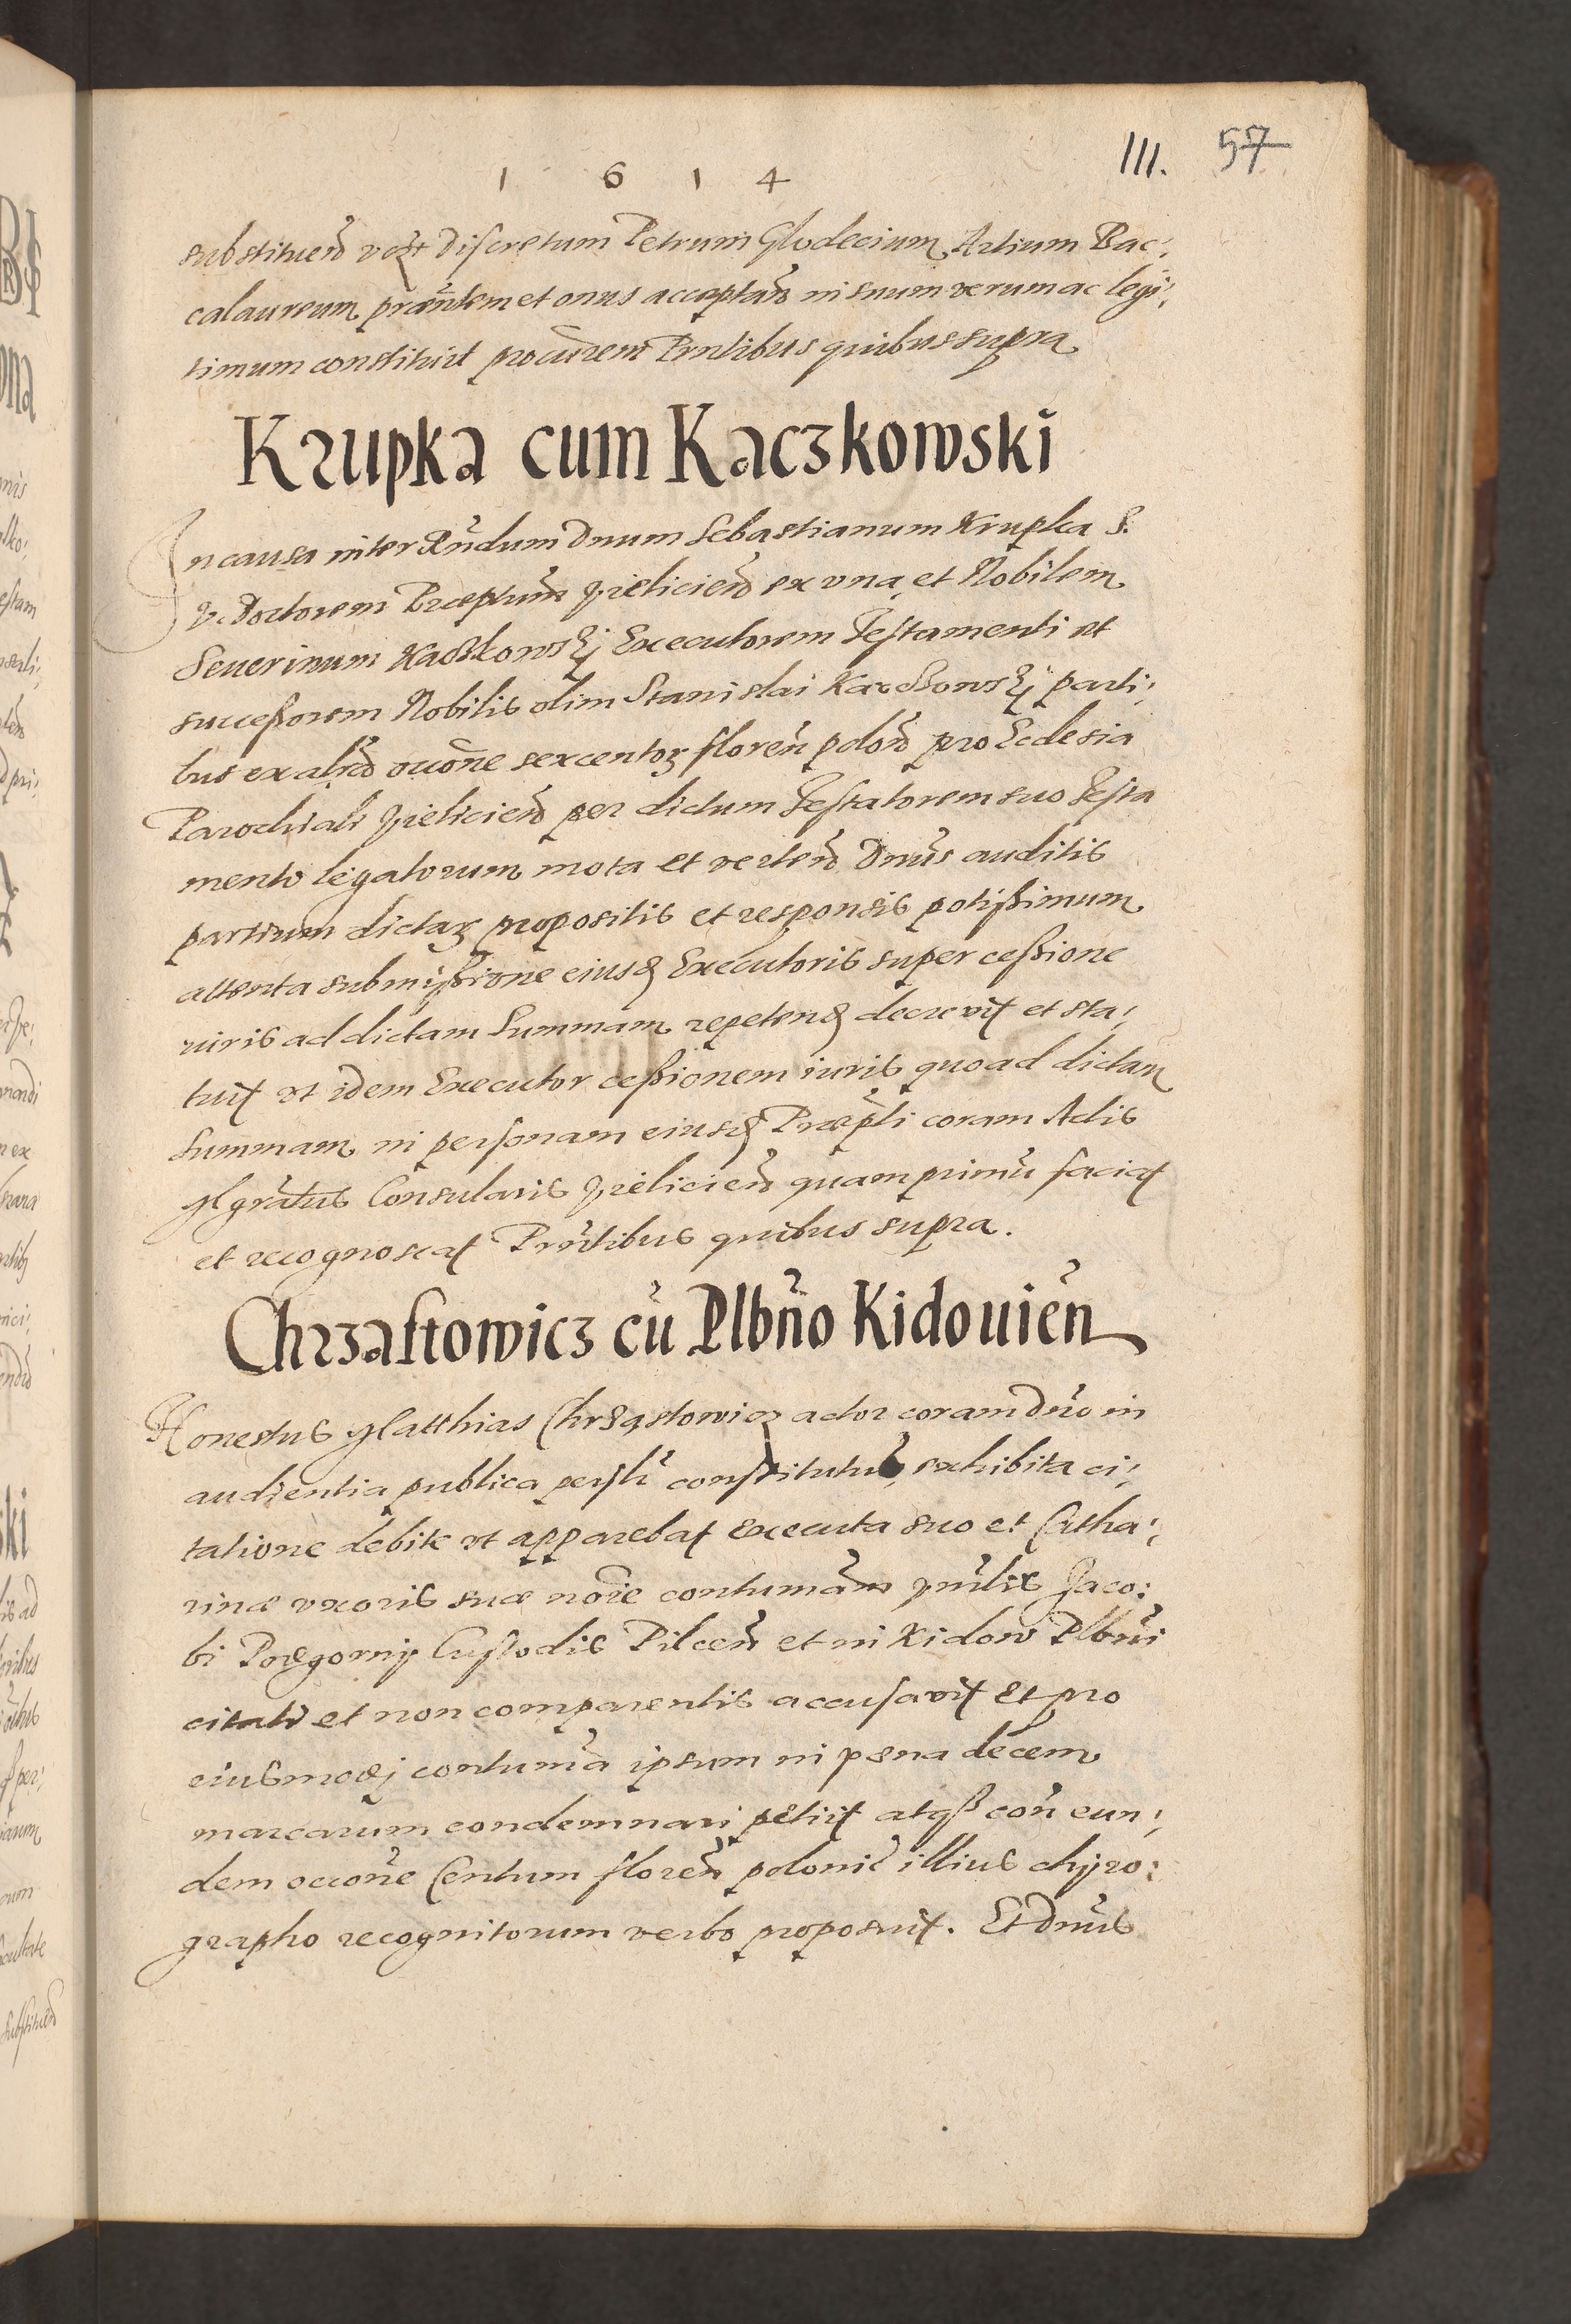 1 6 1 4
III. 57
substituend vert Discretum Petrum Glodecium Artium Bac:
calaureum prãntem et onus acceptan̄ in suum verum ac legi:
timum constituit procurem Prntibus quibus supra
Krupka cum Kaczkowski
In causa inter Rn̄dum Dnum Sebastianum Krupka S.
V. Doctorem Præptum Wieliciens ex vna, et Nobilem
Seuerinum Kaczkowskj Executorem Testamenti et
successorem Nobilis olim Stanislai Kaczkowskj parti:
bus ex alijs oc̄one sexcentorz floren̄ polon̄ pro Ecclesia
Parochiali Wielicien̄ per dictum Testatorem suo Testa
mento legatorum mota et verten̄ Dnūs auditis
partium dictarz propositis et responsis potissimum
attenta submissione eiusd Executoris super cessione
iuris ad dictam Summam repetend decrevit et sta:
tuit vt idem Executor cessionem iuris quoad dictam
Summam in personam eiusd Præpti coram Actis
Mgrãtus Consularis Wielicien̄ quamprimū faciat
et recognoscat Prn̄tibus quibus supra.
Chrzastowicz cū Plbn̄o Kidouien̄
Honestus Matthias Chrząstowicz actor coram Dn̄o in
audientia publica personlr constitutus, exhibita ci:
tatione debite vt apparebat executa suo et Catha:
rinæ vxoris suæ nōie contumām
bi Podgornij Custodis Pilcen̄ et in Kidow Plbn̄i
citati et non comparentis accusavit et pro
eiusmodj contumā ipsum in pœna decem
marcarum condemnari petiit atqȝ con̄ eun:
dem occōne Centum floren̄ polonic illius chyro:
grapho recognitorum verbo proposuit. Et Dnūs